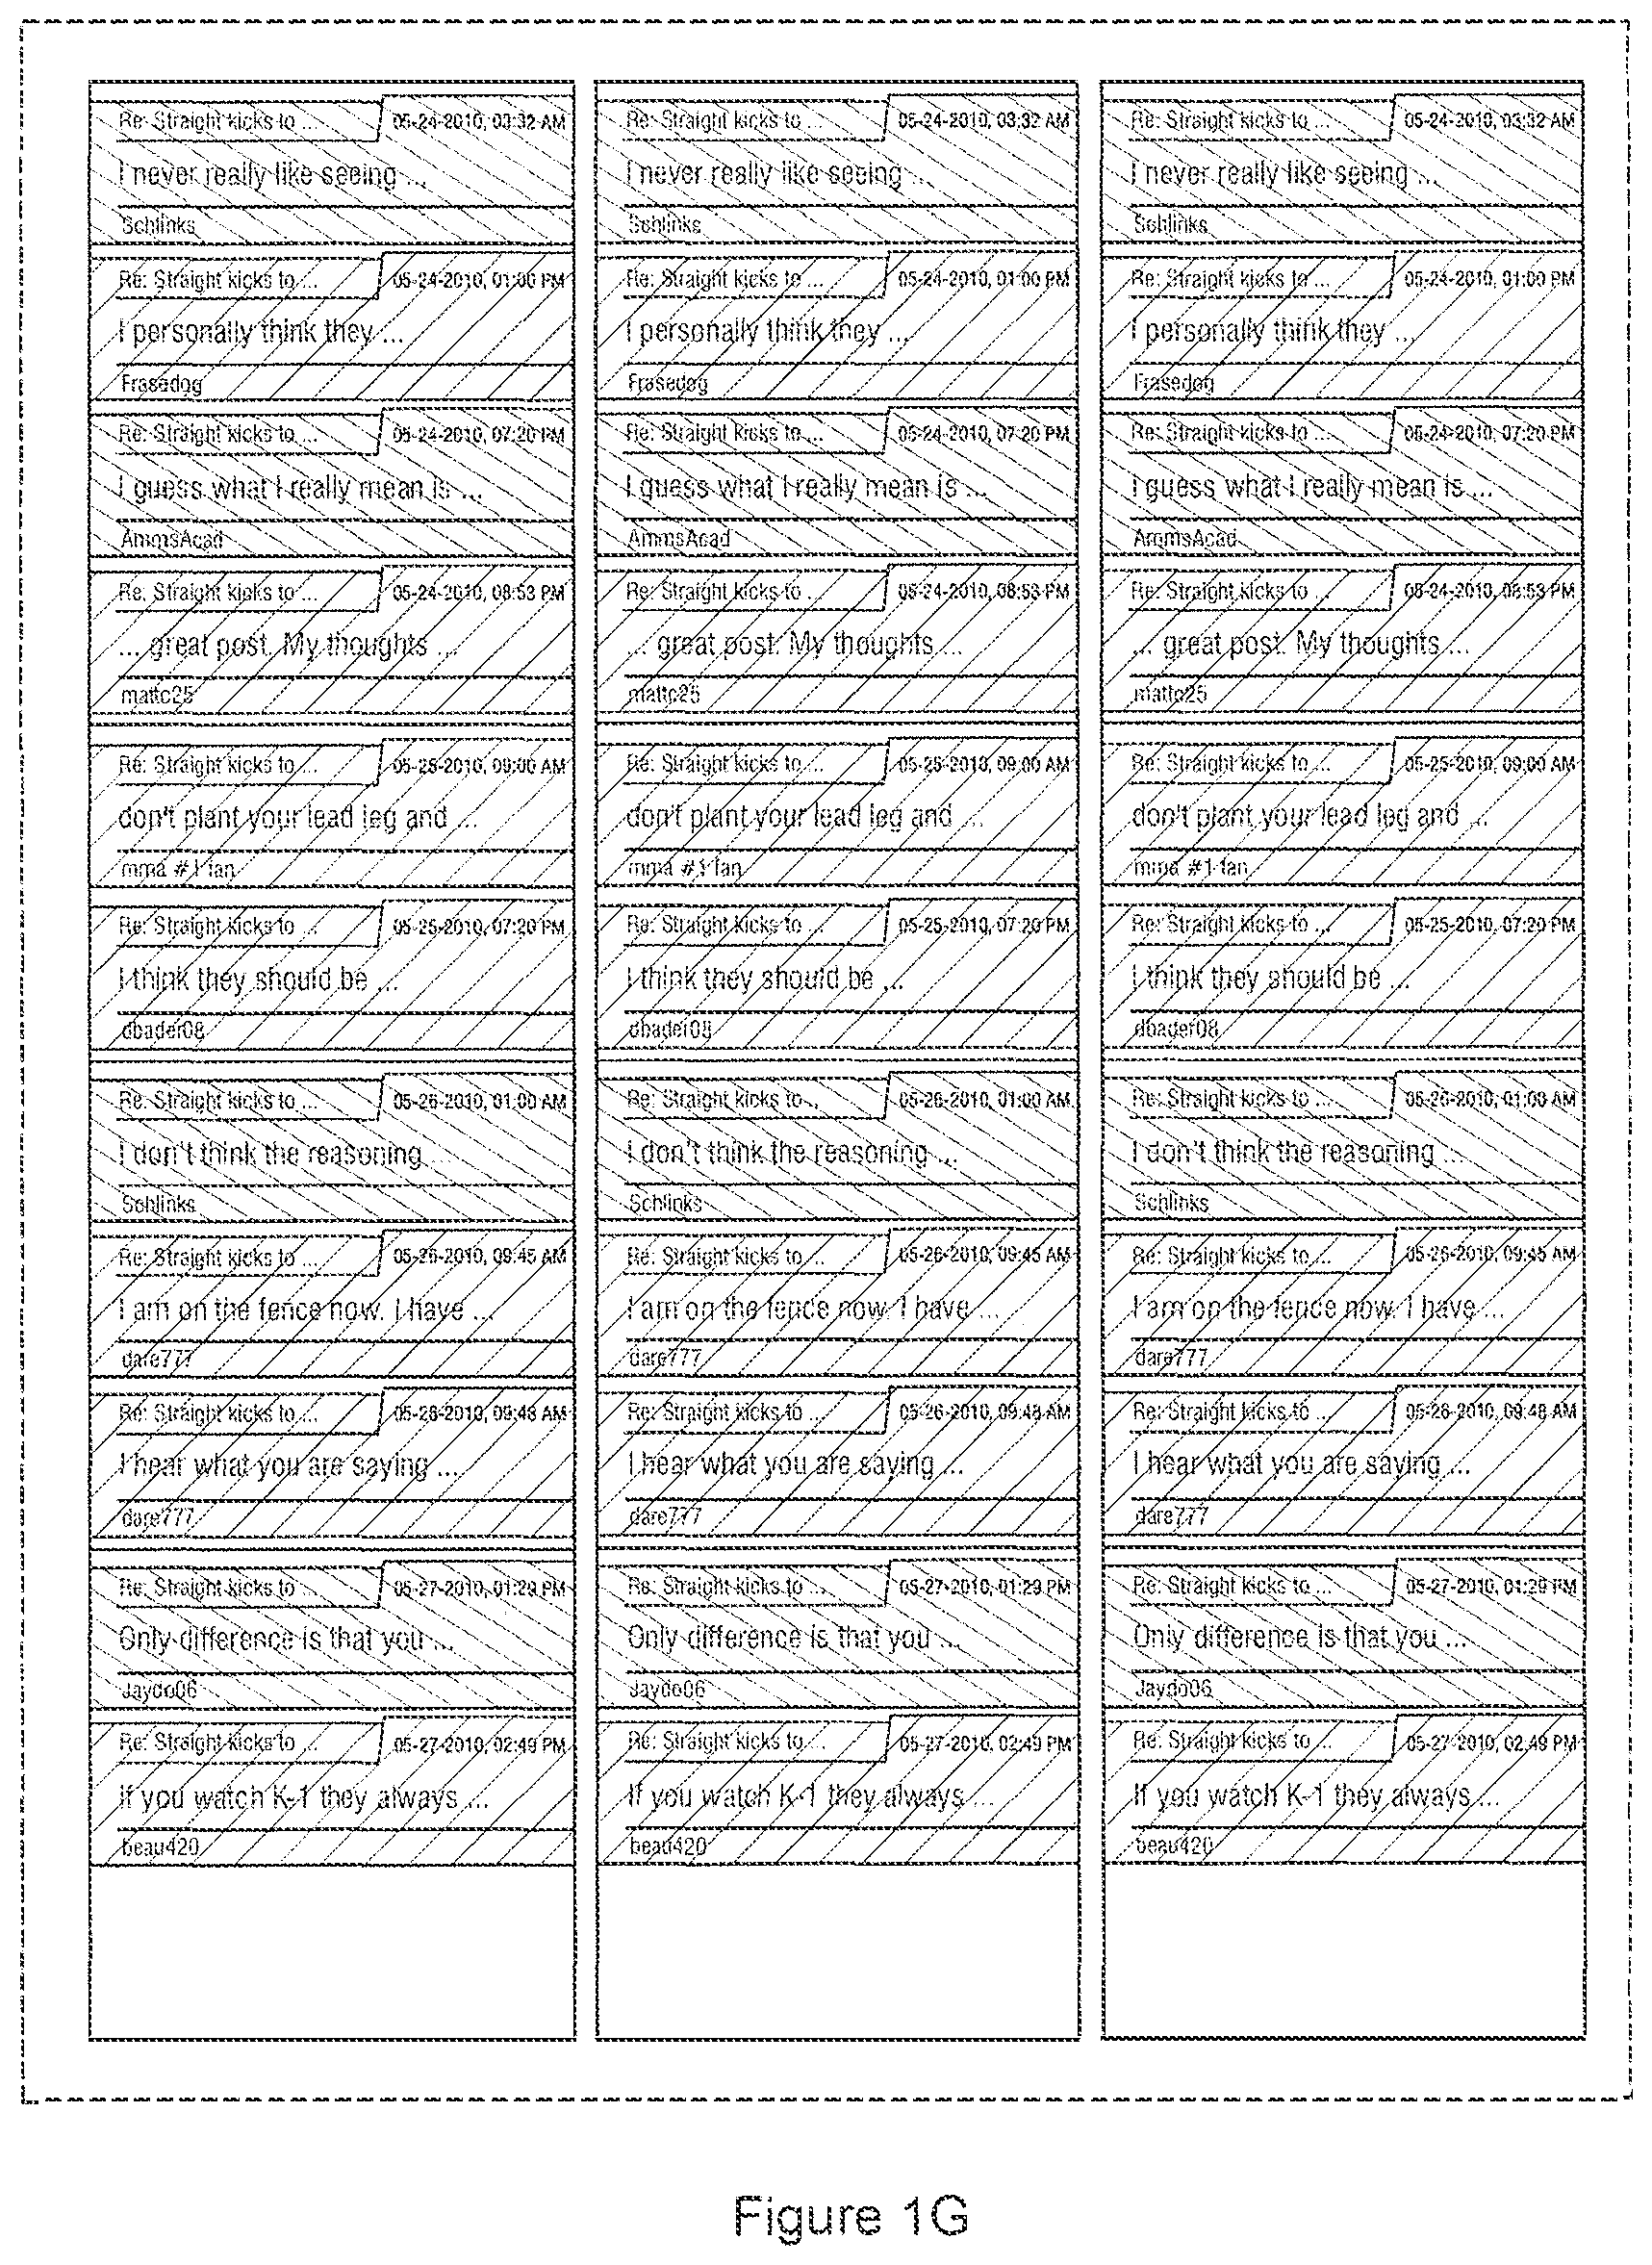 Re: Straight kicks to ... 05-24-2010, 03:32 AM
I never really like seeing ...
Schlinks
Re: Straight kicks to ... 05-24-2010, 01:00 PM
I personally think they ...
Frasedog
Re: Straight kicks to ... 05-24-2010, 07:20 PM
I guess what I really mean is ...
AmmsAcad
Re: Straight kicks to ... 05-24-2010, 08:53 PM
... great post. My thoughts ...
mattc25
Re: Straight kicks to ... 05-25-2010, 09:00 AM
don't plant your lead leg and ...
mma #1 fan
Re: Straight kicks to ... 05-25-2010, 07:20 PM
I think they should be ...
dbader08
Re: Straight kicks to ... 05-26-2010, 01:00 AM
I don't think the reasoning ...
Schlinks
Re: Straight kicks to ... 05-26-2010, 09:45 AM
I am on the fence now. I have ...
dare777
Re: Straight kicks to ... 05-26-2010, 09:48 AM
I hear what you are saying ...
dare777
Re: Straight kicks to ... 05-27-2010, 01:29 PM
Only difference is that you ...
Jaydo06
Re: Straight kicks to ... 05-27-2010, 02:49 PM
If you watch K-1 they always ...
beau420
Re: Straight kicks to ... 05-24-2010, 03:32 AM
I never really like seeing ...
Schlinks
Re: Straight kicks to ... 05-24-2010, 01:00 PM
I personally think they ...
Frasedog
Re: Straight kicks to ... 05-24-2010, 07:20 PM
I guess what I really mean is ...
AmmsAcad
Re: Straight kicks to ... 05-24-2010, 08:53 PM
... great post. My thoughts ...
mattc25
Re: Straight kicks to ... 05-25-2010, 09:00 AM
don't plant your lead leg and ...
mma #1 fan
Re: Straight kicks to ... 05-25-2010, 07:20 PM
I think they should be ...
dbader08
Re: Straight kicks to ... 05-26-2010, 01:00 AM
I don't think the reasoning ...
Schlinks
Re: Straight kicks to ... 05-26-2010, 09:45 AM
I am on the fence now. I have ...
dare777
Re: Straight kicks to ... 05-26-2010, 09:48 AM
I hear what you are saying ...
dare777
Re: Straight kicks to ... 05-27-2010, 01:29 PM
Only difference is that you ...
Jaydo06
Re: Straight kicks to ... 05-27-2010, 02:49 PM
If you watch K-1 they always ...
beau420
Re: Straight kicks to ... 05-24-2010, 03:32 AM
I never really like seeing ...
Schlinks
Re: Straight kicks to ... 05-24-2010, 01:00 PM
I personally think they ...
Frasedog
Re: Straight kicks to ... 05-24-2010, 07:20 PM
I guess what I really mean is ...
AmmsAcad
Re: Straight kicks to ... 05-24-2010, 08:53 PM
... great post. My thoughts ...
mattc25
Re: Straight kicks to ... 05-25-2010, 09:00 AM
don't plant your lead leg and ...
mma #1 fan
Re: Straight kicks to ... 05-25-2010, 07:20 PM
I think they should be ...
dbader08
Re: Straight kicks to ... 05-26-2010, 01:00 AM
I don't think the reasoning ...
Schlinks
Re: Straight kicks to ... 05-26-2010, 09:45 AM
I am on the fence now. I have ...
dare777
Re: Straight kicks to ... 05-26-2010, 09:48 AM
I hear what you are saying ...
dare777
Re: Straight kicks to ... 05-27-2010, 01:29 PM
Only difference is that you ...
Jaydo06
Re: Straight kicks to ... 05-27-2010, 02:49 PM
If you watch K-1 they always ...
beau420
Figure 1G